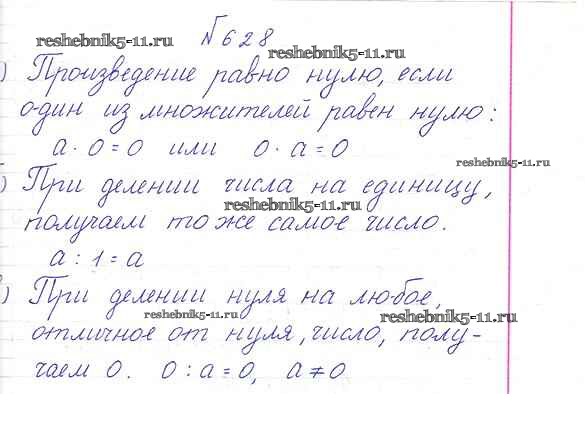 №628
reshebnik5-11.ru
reshebnik5-11.ru
) Произведение равно нулю, если
один из множителей равен нулю:
a · 0 = 0 или 0 · a = 0
reshebnik5-11.ru
) При делении числа на единицу,
reshebnik5-11.ru
получаем то же самое число.
a : 1 = a
) При делении нуля на любое,
reshebnik5-11.ru
reshebnik5-11.ru
отличное от нуля, число, полу-
чаем 0. 0 : a = 0, a ≠ 0